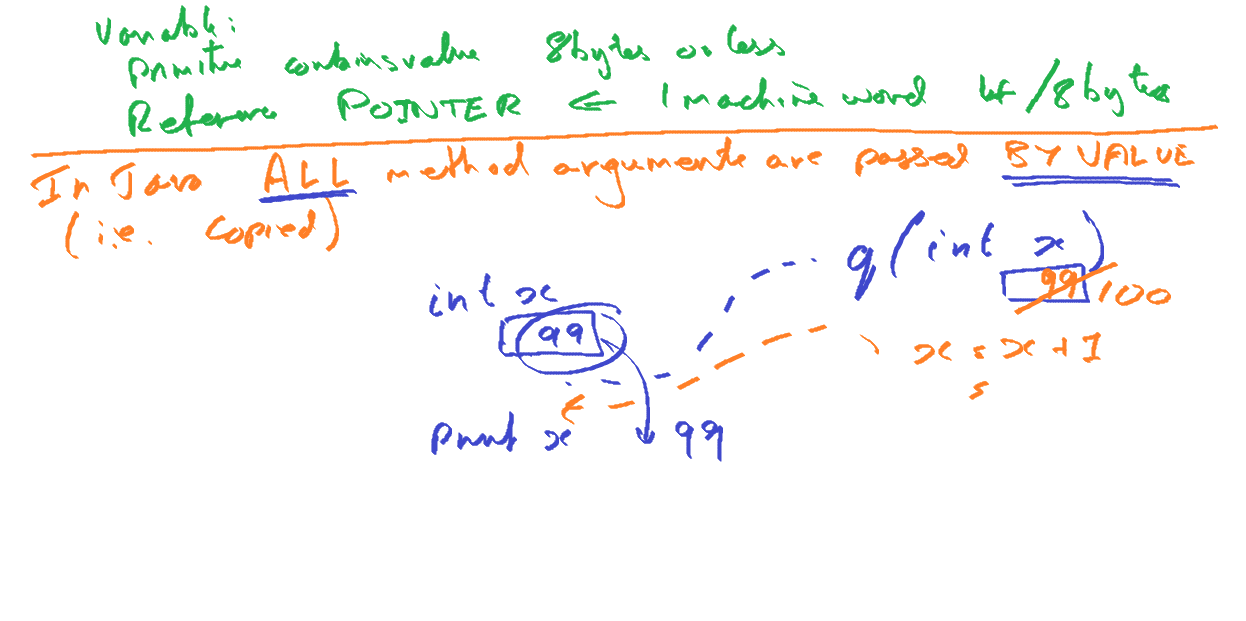 Variable:
Primitive contains value 8 bytes or less
Reference POINTER ← 1 machine word 4/8 bytes
In Java ALL method arguments are passed BY VALUE
(i.e. copied)
q(int x)
int x
99 100
99
x = x + 1
print x 99